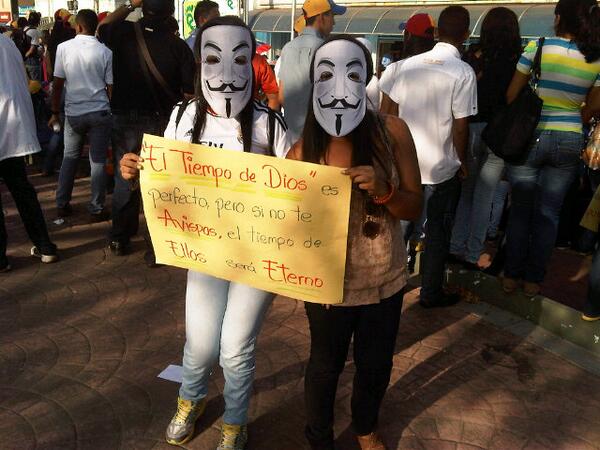 "El Tiempo de Dios" es
perfecto, pero si no te
Avispas, el tiempo de
Ellos será Eterno